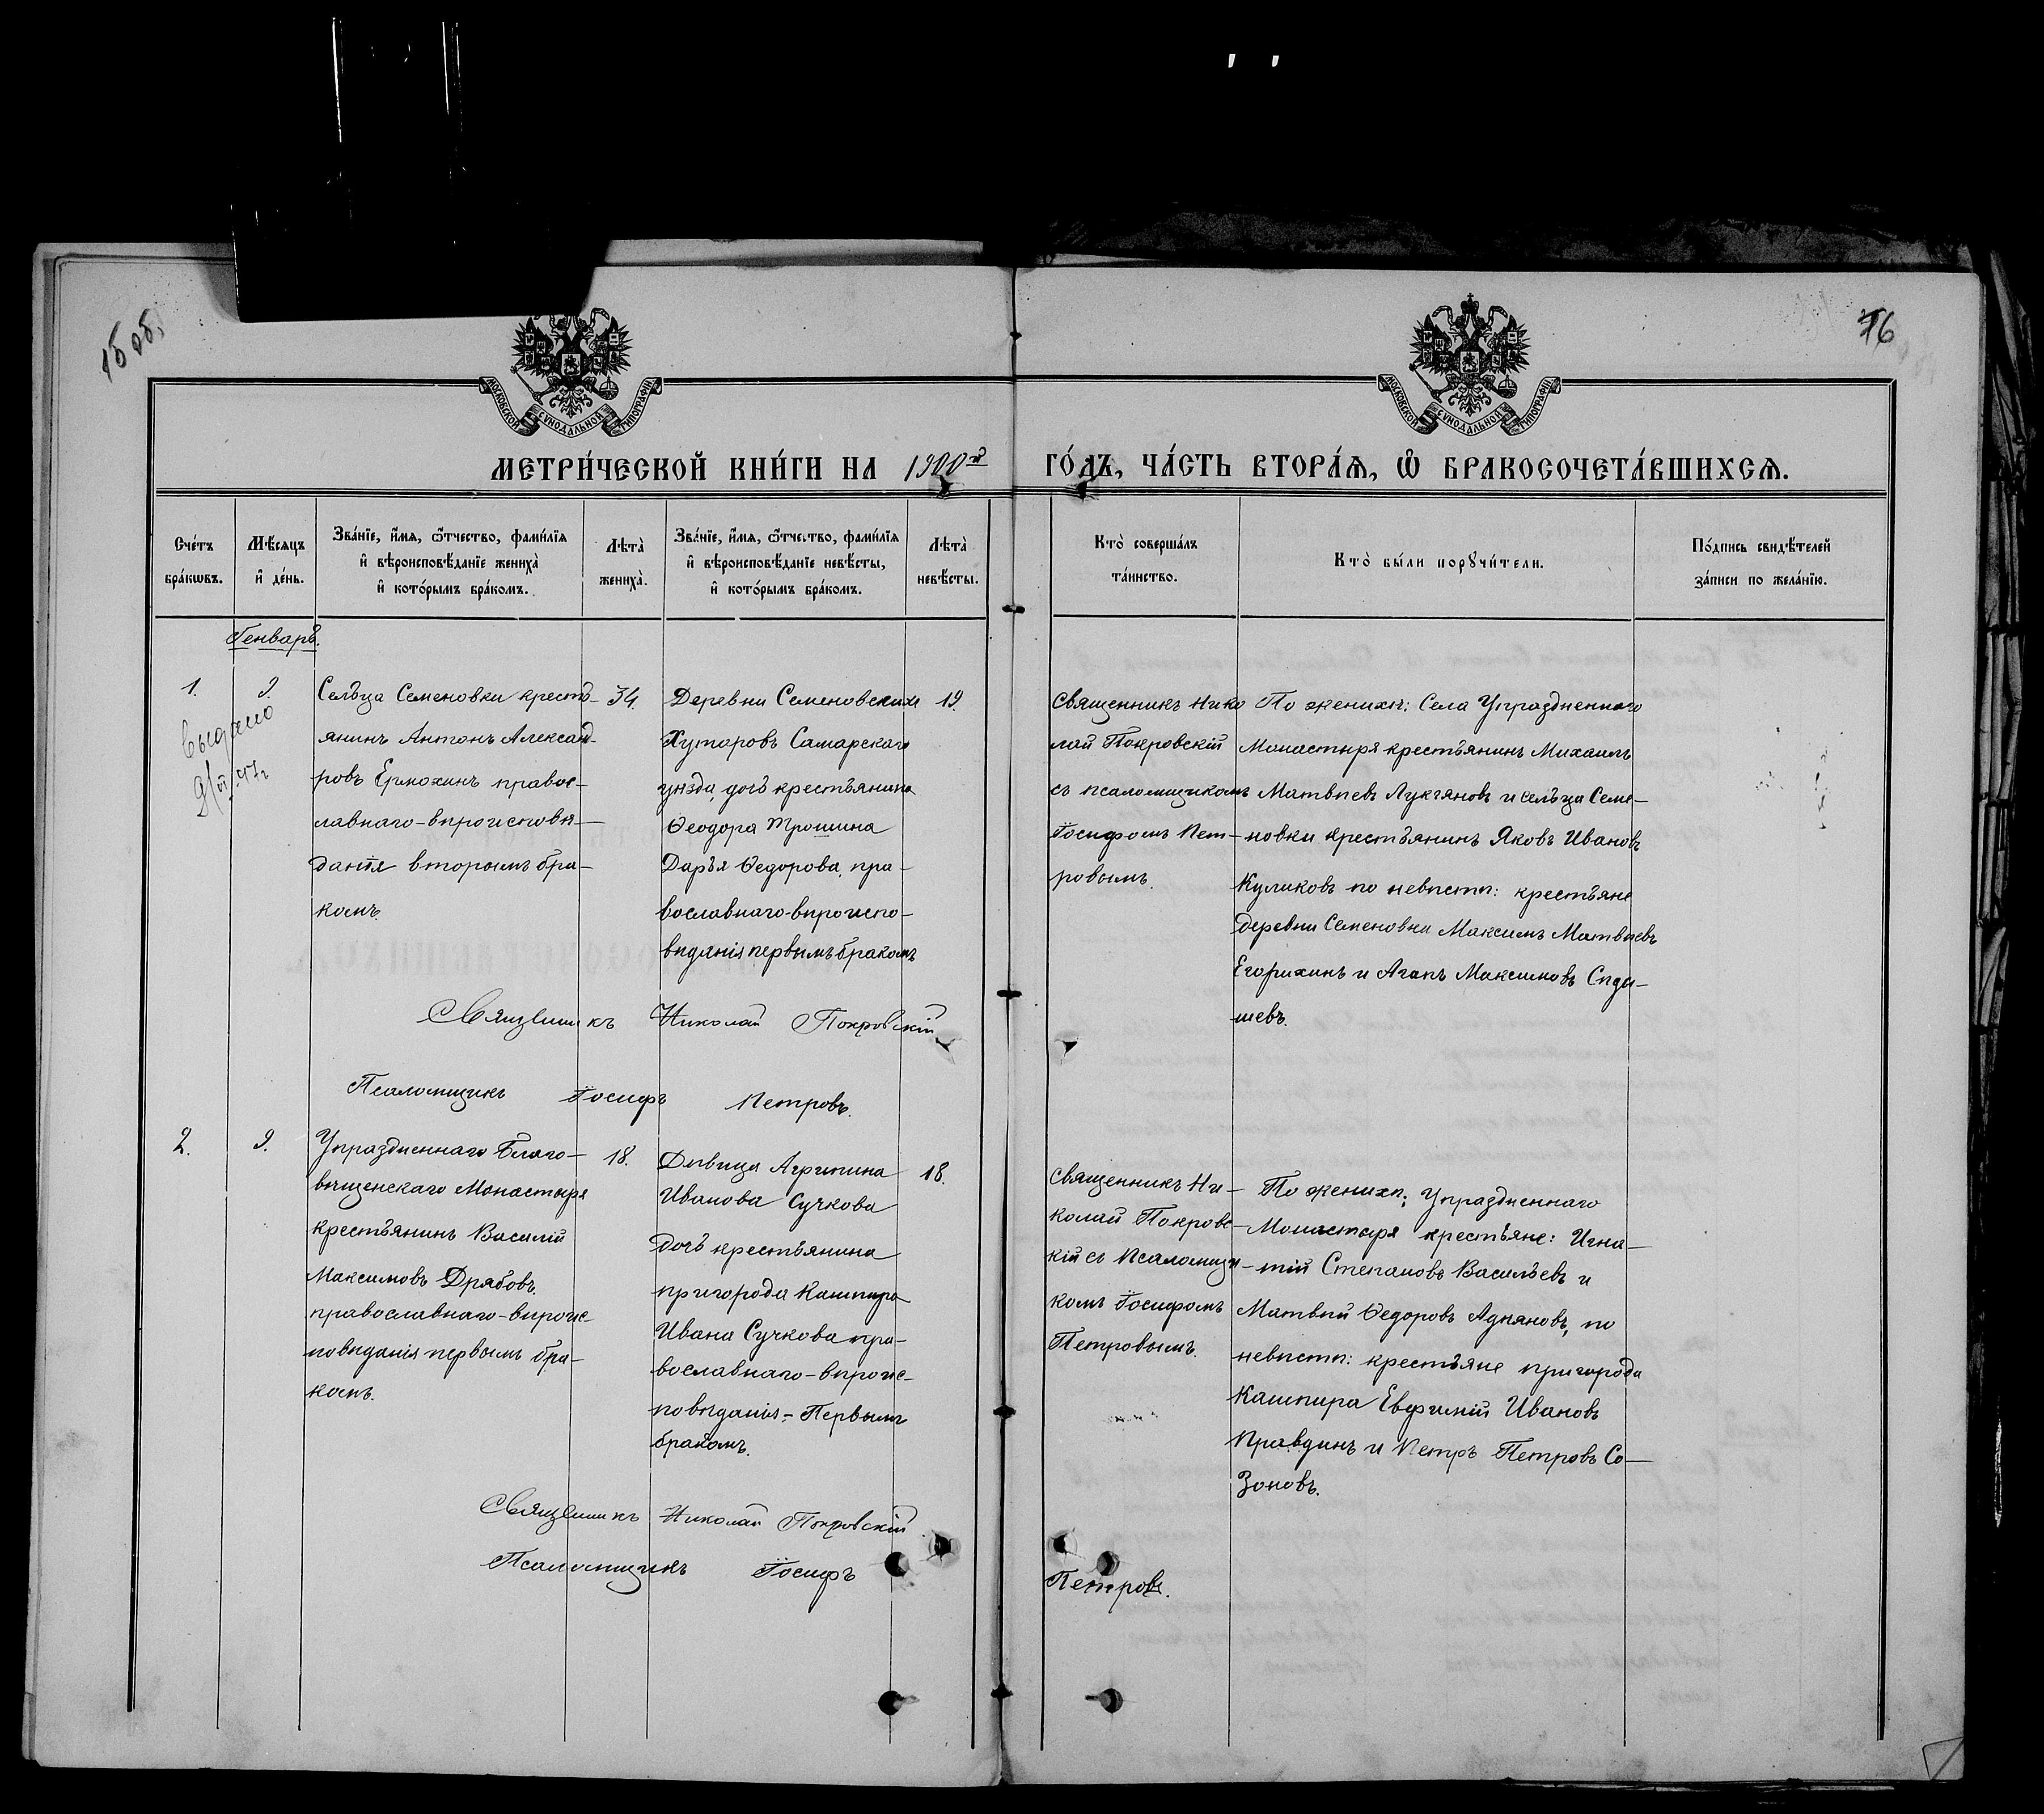 15 об.
16
МОСКОВСКОЙ СУНОДАЛЬНОЙ ТИПОГРАФІИ
МОСКОВСКОЙ СУНОДАЛЬНОЙ ТИПОГРАФІИ
МЕТРИ́ЧЕСКОЙ КНИ́ГИ НА 1900й ГО́ДЪ, ЧА́СТЬ ВТОРА́Я, Ѡ БРАКОСОЧЕТА́ВШИХСЯ.
Сче́тъ
бра́кѡвъ.
Мѣ́сяцъ
и де́нь.
Зва́нїе, и́мя, ѻ́тчество, фами́лїя
и вѣроисповѣ́данїе жениха̀
и кото́рымъ бра́комъ.
Лѣта̀
жениха̀.
Зва́нїе, и́мя, ѻ́тчество, фами́лїя
и вѣроисповѣ́данїе невѣ́сты,
и кото́рымъ бра́комъ.
Лѣта̀
невѣ́сты.
Кто̀ соверша́лъ
та́инство.
Кто̀ бы́ли порꙋчи́тели.
По́дпись свидѣ́телей
за́писи по жела́нїю.
Генварь.
1.
9.
Выдано
Сельца Семеновки кресть-
янинъ Антонъ Александ-
ровъ Ермохинъ правос-
лавнаго-вѣроисповѣ-
данія вторымъ бра-
комъ.
34.
Деревни Семеновскихъ
Хуторовъ Самарскаго
уѣзда, дочь крестьянина
Ѳеодора Трошина
Дарья Ѳедорова, пра-
вославнаго-вѣроиспо-
вѣданія первымъ бракомъ
19.
Священникъ Нико
лай Покровскій
съ псаломщикомъ
Іосифомъ Пет-
ровымъ.
По женихѣ: Села Упраздненнаго
Монастыря крестьянинъ Михаилъ
Матвѣевъ Лукьяновъ и сельца Семе-
новки крестьянинъ Яковъ Ивановъ
Куликовъ по невѣстѣ: крестьяне
деревни Семеновки Максимъ Матвѣевъ
Егорихинъ и Агапъ Максимовъ Сѣды-
шевъ.
Священникъ Николай Покровскій
Псаломщикъ Іосифъ Петровъ.
2.
9.
Упраздненнаго Благо-
вѣщенскаго Монастыря
крестьянинъ Василій
Максимовъ Дрябовъ.
православнаго-вѣроис
повѣданія первымъ бра-
комъ.
18.
Дѣвица Агрипина
Иванова Сучкова
дочь крестьянина
пригорода Кашпира
Ивана Сучкова пра-
вославнаго-вѣроис-
повѣданія-Первымъ
бракомъ.
18.
Священникъ Ни-
колай Покровс-
кій съ Псаломщи-
комъ Іосифомъ
Петровымъ.
По женихѣ: Упраздненнаго
Монастыря крестьяне: Игна-
тій Степановъ Васильевъ и
Матвѣй Ѳедоровъ Адуяновъ, по
невѣстѣ: крестьяне пригорода
Кашпира Евфимій Ивановъ
Правдинъ и Петръ Петровъ Со-
зоновъ.
Священникъ Николай Покровскій
Псаломщикъ Іосифъ Петровъ.